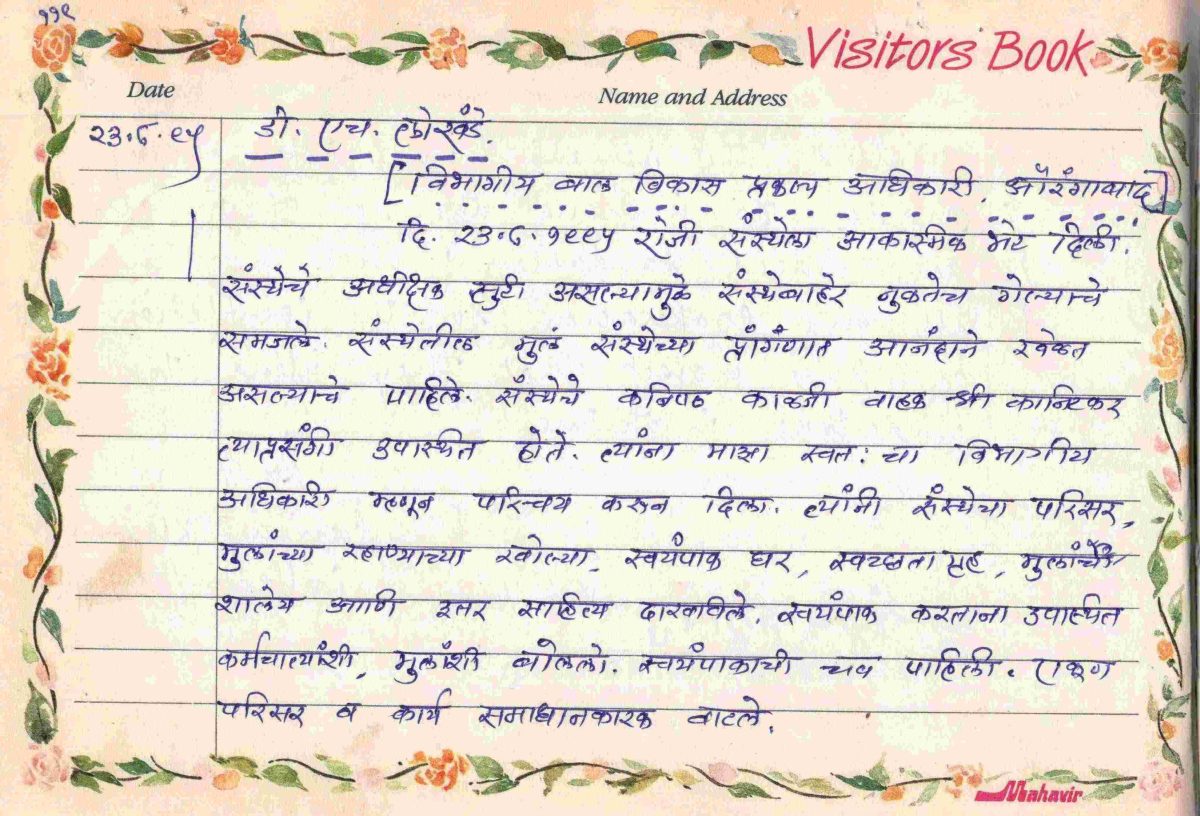 ११९
Visitors Book
Date
Name and Address
२३.८.९५
डी. एच. लोखंडे.
[विभागीय बाल विकास प्रकल्प अधिकारी. औरंगाबाद]
दि. २३.८.१९९५ रोजी संस्थेला आकस्मिक भेट दिली.
संस्थेचे अधीक्षक सुटी असल्यामुळे संस्थेबाहेर नुकतेच गेल्याचे
समजले. संस्थेतील मुलं संस्थेच्या प्रांगणात आनंदाने खेळत
असल्याचे पाहिले. संस्थेचे कनिष्ठ काळजी वाहक श्री कानिटकर
त्याप्रसंगी उपस्थित होते. त्यांना माझा स्वत: चा विभागीय
अधिकारी म्हणून परिचय करून दिला. त्यांनी संस्थेचा परिसर,
मुलांच्या रहाण्याच्या खोल्या, स्वयंपाक घर, स्वच्छता गृह, मुलांचे
शालेय आणि इतर साहित्य दाखविले. स्वयंपाक करताना उपस्थित
कर्मचाऱ्यांशी, मुलांशी बोललो. स्वयंपाकाची चव पाहिली. एकूण
परिसर व कार्य समाधानकारक वाटले.
Mahavir